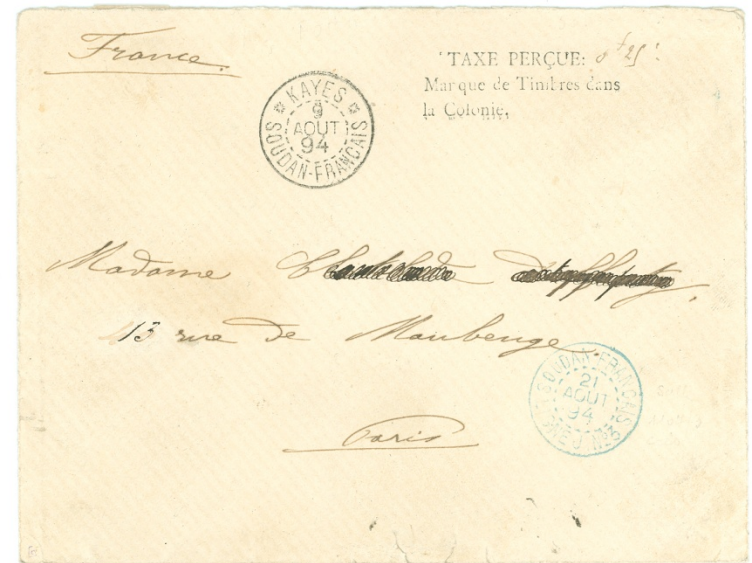 France.
TAXE PERÇUE: 0f 25c
Marque de Timbres dans
la Colonie,
KAYES
9
AOUT
94
SOUDAN-FRANCAIS
Madame
13 rue de Maubeuge
SOUDAN-FRANCAIS
21
AOUT
94
Paris